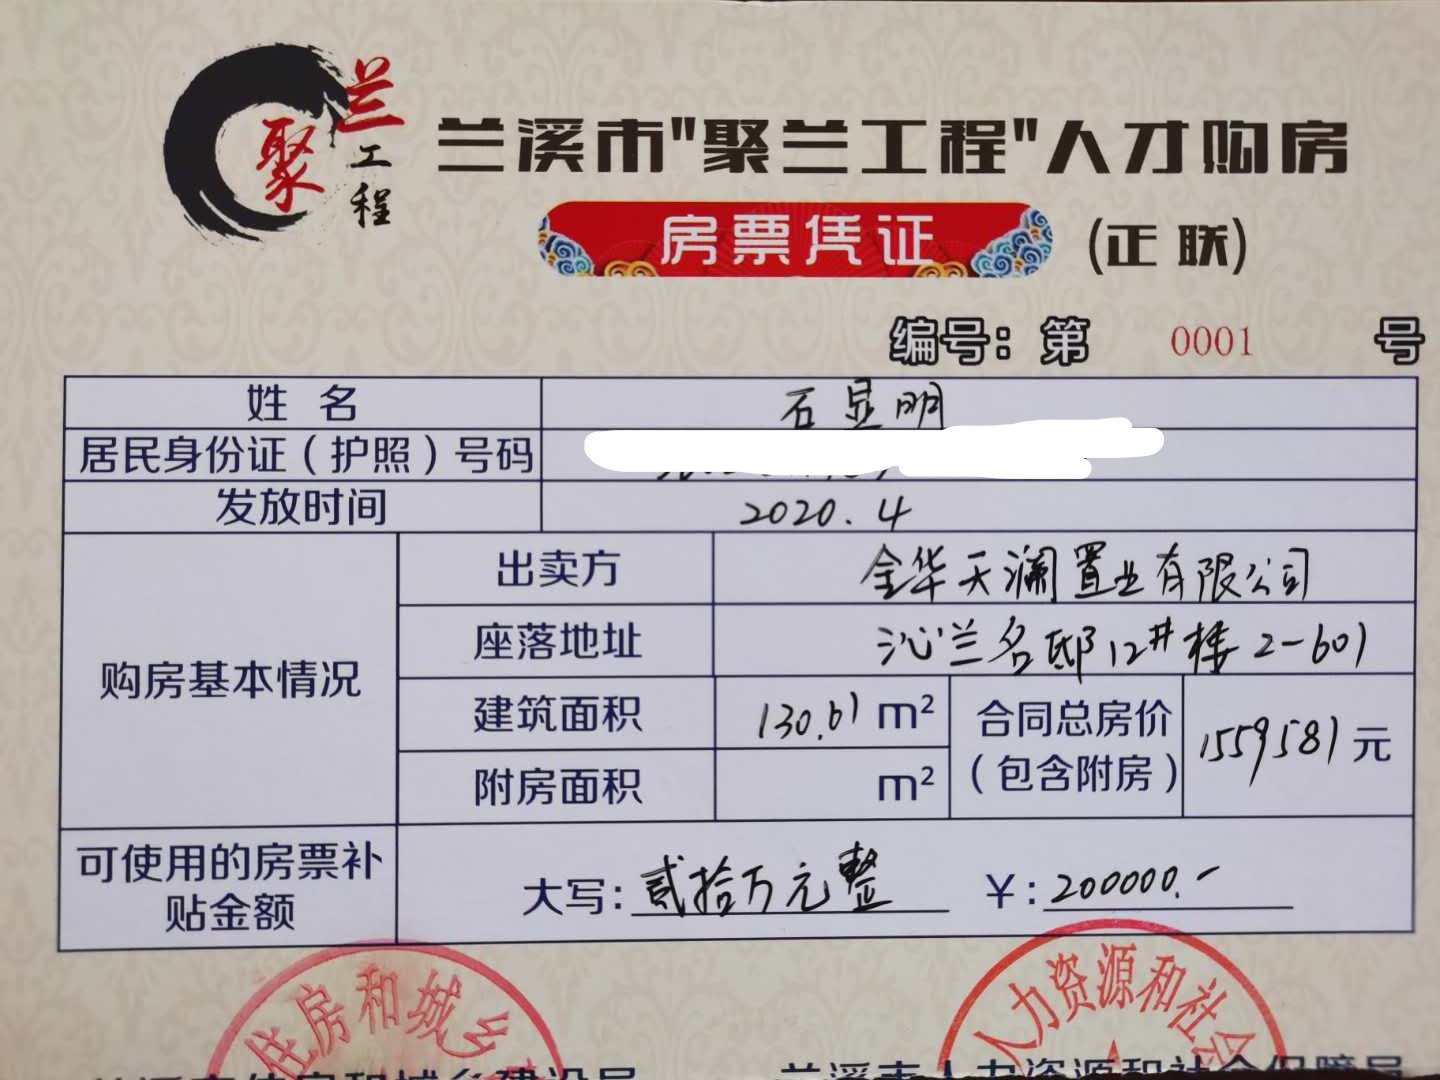 兰
聚
工
程
兰溪市"聚兰工程"人才购房
房票凭证 (正联)
编号：第 0001 号
姓 名 石显明
居民身份证（护照）号码
发放时间 2020.4
购房基本情况
出卖方 金华天澜置业有限公司
座落地址 沁兰名邸12#楼2-601
建筑面积 130.61 m²
附房面积 m²
合同总房价
（包含附房）
1559581元
可使用的房票补
贴金额
大写：贰拾万元整 ¥：200000.-
住房和城乡
人力资源和社会
兰溪市住房和城乡建设局 兰溪市人力资源和社会保障局